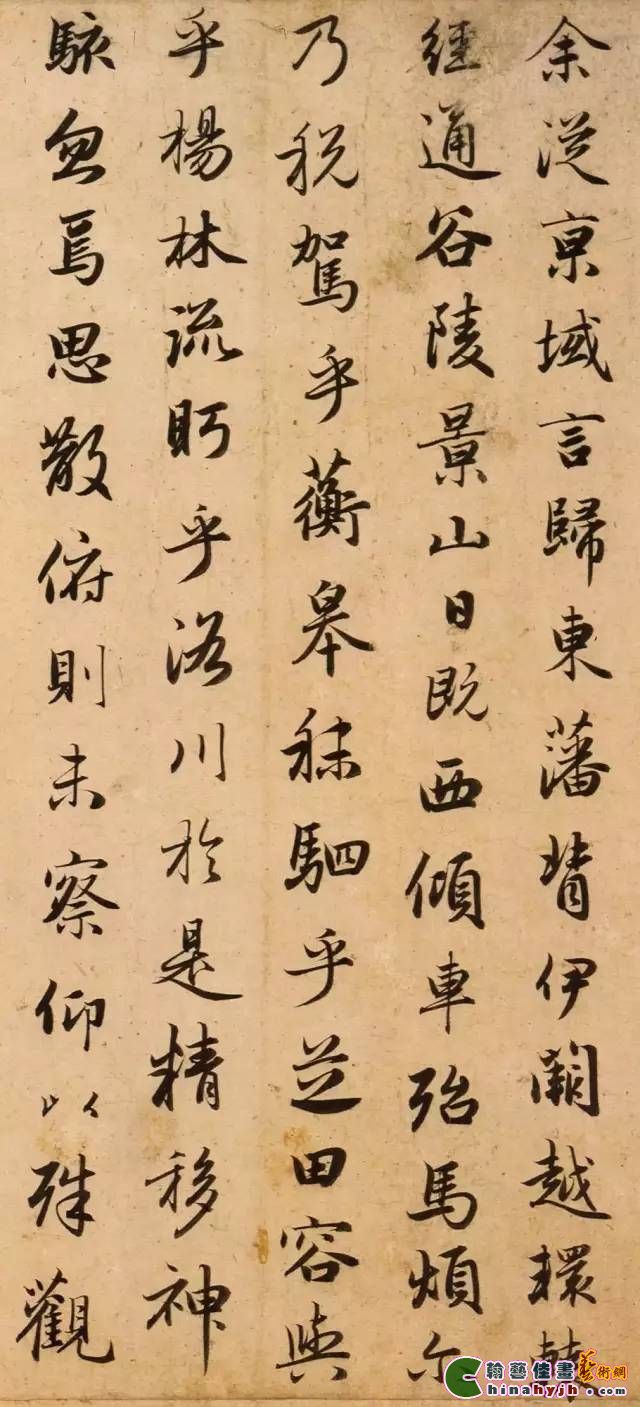 余從京域言歸東藩背伊闕越轘轅
經通谷陵景山日既西傾車殆馬煩尓
乃税駕乎蘅皋秣駟乎芝田容與
乎楊林流眄乎洛川於是精移神
駭忽焉思散俯則未察仰以殊觀
翰藝佳畫藝術網
hinahyjh.com